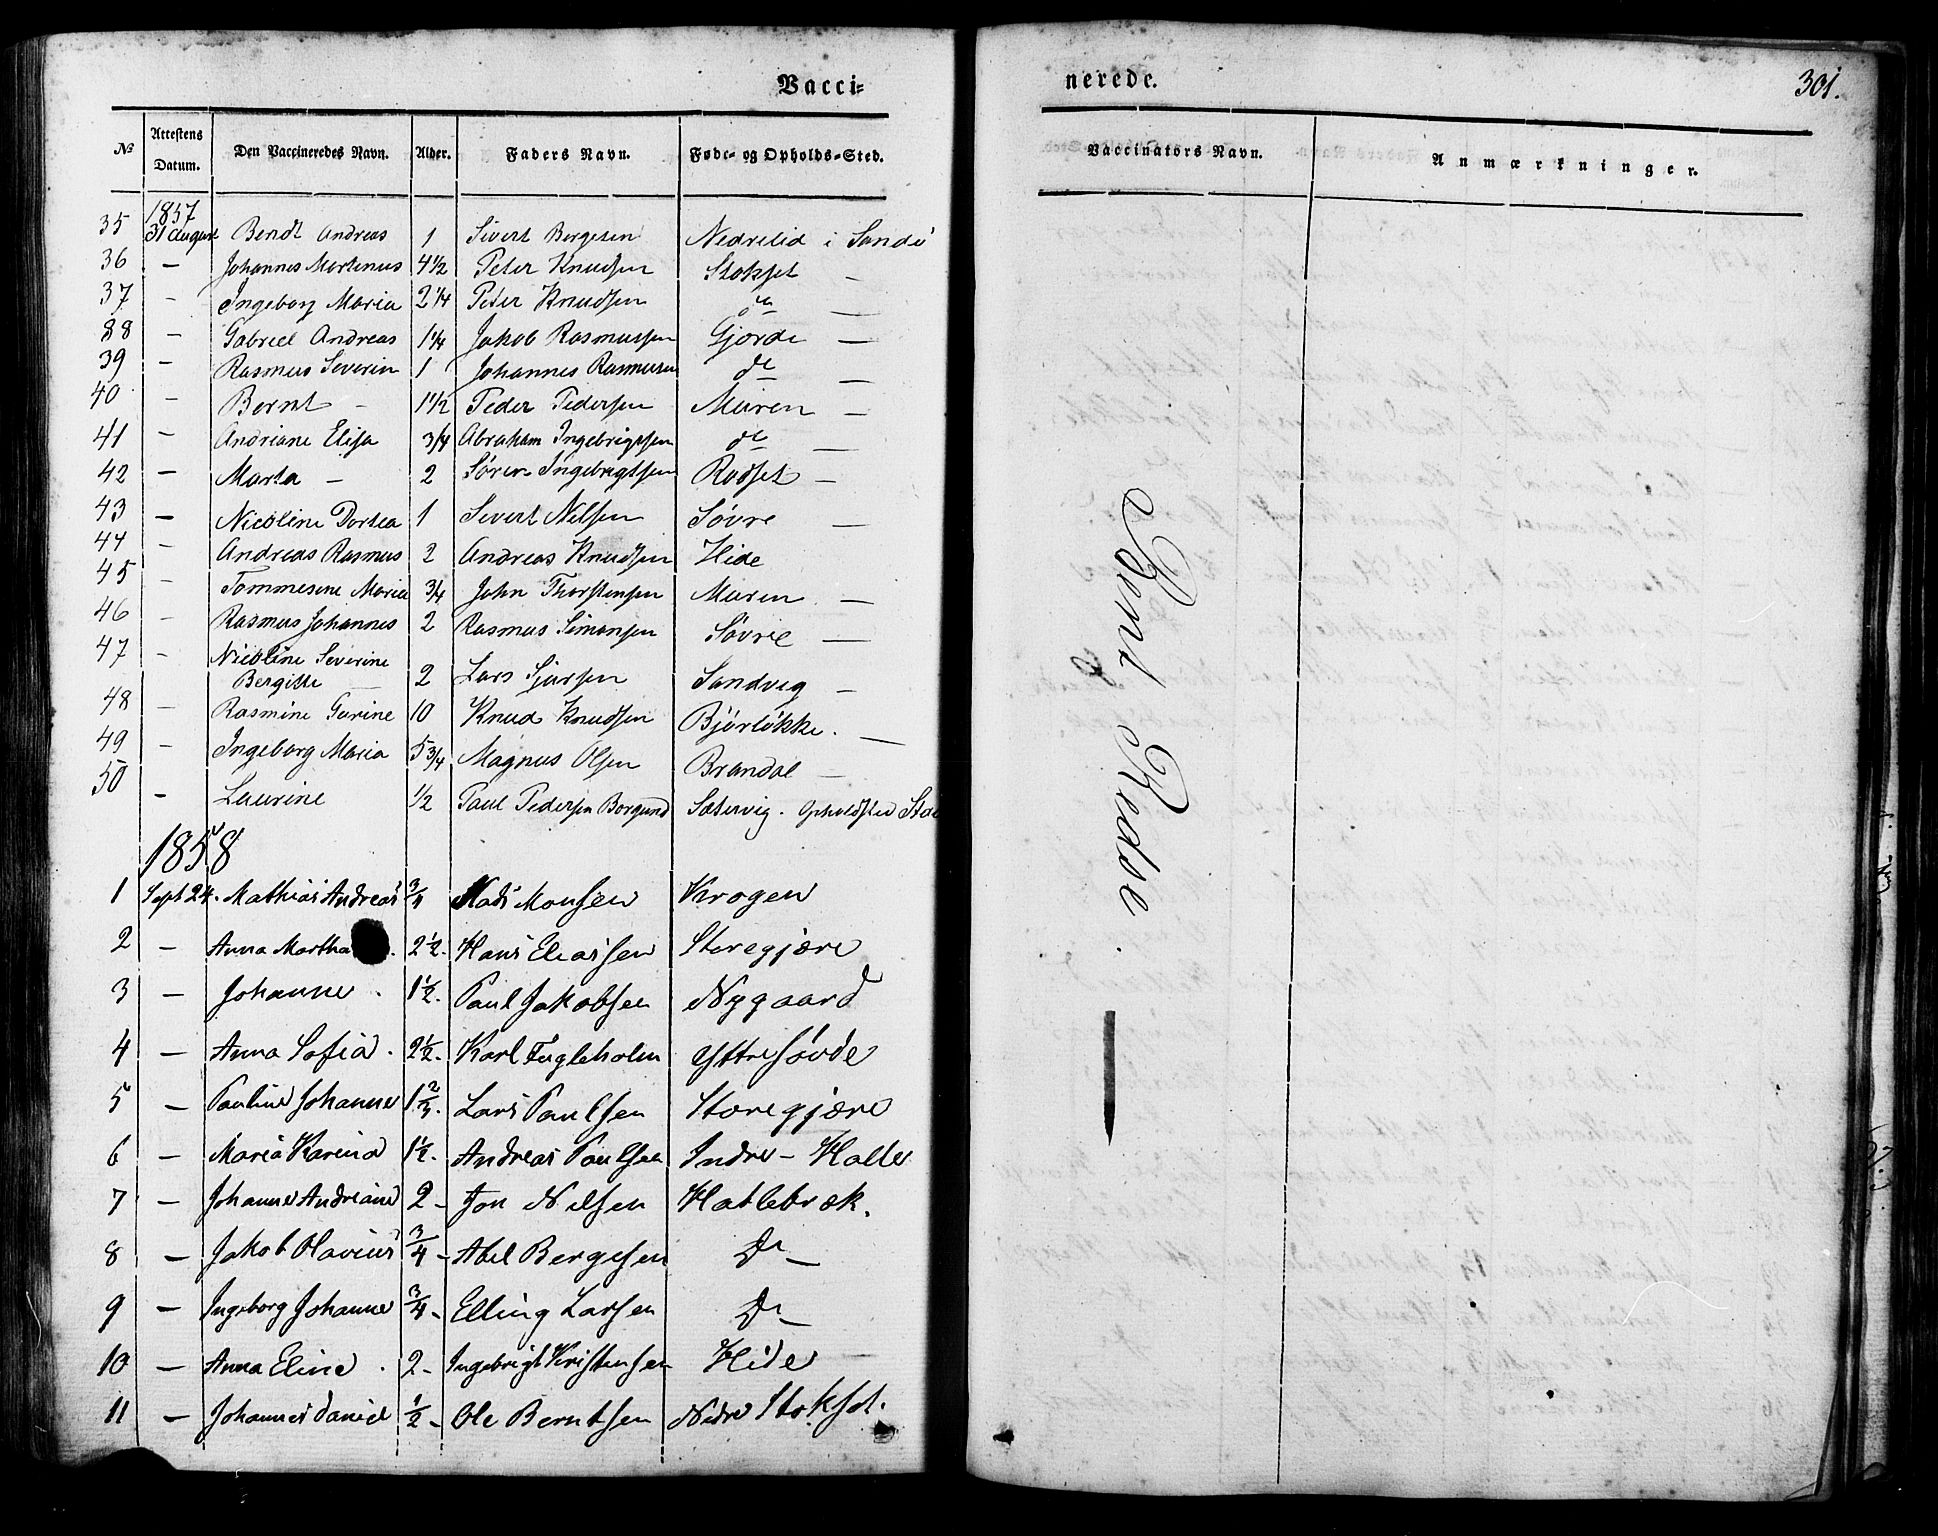 Vacci-
№ Attestens Datum. Den Vaccineredes Navn. Alder. Faders Navn. Føde- og Opholds-Sted.
1857
35 31 August Bendt Andreas 1 Sivert Bergesen Nedrelid i Sande
36 — Johannes Martinus 4 1/2 Peter Knudsen Stokset —
37 - Ingeborg Maria 2 1/4 Peter Knudsen do —
38 - Gabriel Andreas 1 1/4 Jakob Rasmussen Gjerde —
39 - Rasmus Severin 1 Johannes Rasmussen do —
40 - Bernt - 1 1/2 Peder Pedersen Muren —
41 - Andriane Elisa 3/4 Abraham Ingebrigtsen do —
42 - Marta - 2 Søren Ingebrigtsen Rødset —
43 - Nicoline Dortea 1 Sivert Nilsen Søvre —
44 - Andreas Rasmus 2 Andreas Knudsen Hide
45 - Tommesine Maria 3/4 John Thorstensen Muren —
46 - Rasmus Johannes 2 Rasmus Simonsen Søvre —
47 - Nicoline Severine
Bergitte — 2 Lars Sjursen Sandvig —
48 - Rasmine Gurine 10 Knud Knudsen Bjørløkke. —
49 - Ingeborg Maria 5 3/4 Magnus Olsen Brandal —
50 - Laurine 1/2 Paul Pedersen Borgund Sætervig. Opholdsted
1858
1 Sept 24. Mathias Andreas 3/4 Mads Monsen Krogen
2 — Anna Martha . 2 1/2. Hans Eliassen Storegjære
3 — Johanne . 1 1/2. Paul Jakobsen Nygaard
4 — Anna Sofia . 2 1/2. Karl Fugleholm Yttre Søvde
5 — Pauline Johanne 1 2/3. Lars Paulsen Storegjære
6 — Maria Karina 1 1/2. Andreas Paulsen Indre - Halle
7 — Johanne Andriane 2 - Jon Nilsen Hatlebræk.
8 — Jakob Olavius 3/4 - Abel Bergesen Do —
9 — Ingeborg Johanne 3/4 - Elling Larsen Do —
10 — Anna Eline . 2 - Ingebrigt Kristensen Hide
11 — Johannes Daniel 1/2 - Ole Berntsen Nedre Stokset.
nerede.
301.
Vaccinators Navn. Anmærkninger.
Bernt Rødse.